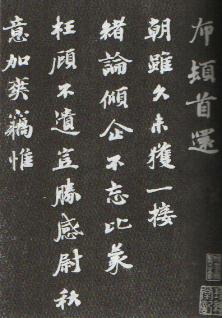 布頓首還
朝雖久未獲一接
緒論傾企不忘比蒙
枉顧不遺豈勝感尉秋
意加爽竊惟